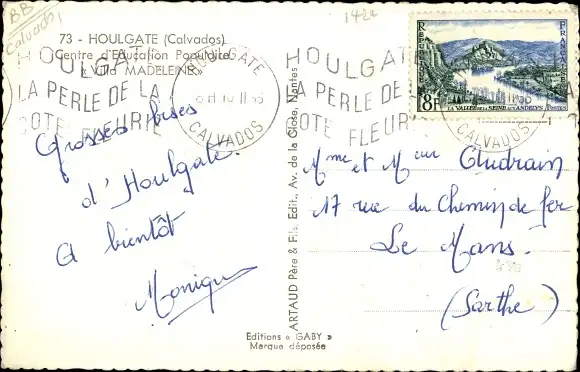 BB
Calvados
1422
73 - HOULGATE (Calvados)
Centre d'Education Populaire
« Villa MADELEINE »
HOULGATE
LA PERLE DE LA
COTE FLEURIE
HOULGATE
CALVADOS
Grosses bises
d'Houlgate.
A bientôt
Monique
ARTAUD Père & Fils, Edit., Av. de la Gloire, Nantes
Editions « GABY »
Marque déposée
HOULGATE
LA PERLE DE
COTE FLEUR
CALVADOS
REPUBLIQUE
FRANÇAISE
8F
LA VALLÉE DE LA SEINE AUX ANDELYS
POSTES
Mme et Mr Audrain
17 rue du Chemin de fer
Le Mans.
(Sarthe)